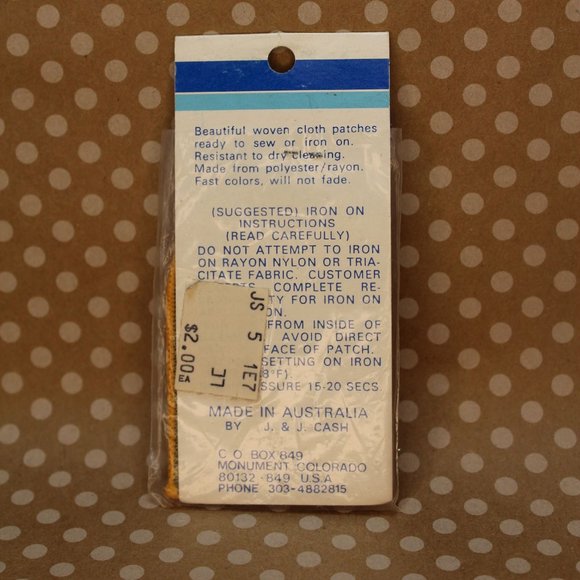 Beautiful woven cloth patches
ready to sew or iron on.
Resistant to dry cleaning.
Made from polyester/rayon.
Fast colors, will not fade.
(SUGGESTED) IRON ON
INSTRUCTIONS
(READ CAREFULLY)
DO NOT ATTEMPT TO IRON
ON RAYON NYLON OR TRIA-
CITATE FABRIC. CUSTOMER
COMPLETE RE-
FOR IRON ON
FROM INSIDE OF
AVOID DIRECT
OF PATCH.
SETTING ON IRON
15-20 SECS.
MADE IN AUSTRALIA
BY J. & J. CASH
C O BOX 849
MONUMENT COLORADO
80132-849 U.S.A
PHONE 303-4882815
JS 5 1E7
$2.00